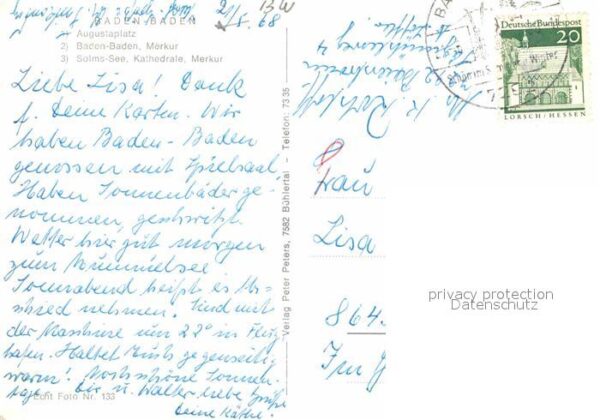 21/8.68
BADEN BADEN
Augustaplatz
2) Baden-Baden, Merkur
3) Solms-See, Kathedrale, Merkur
Liebe Lisa! Dank
f. Deine Karten. Wir
haben Baden-Baden
genossen mit Spielsaal,
Haben Sonnenbäder ge-
nommen, geschwitzt.
Wetter hier gut morgen
zum Mummelsee
Sonnabend heißt es Ab-
schied nehmen. Sind mit
der Maschine um 22° in Flug
hafen. Haltet Euch gegenseitig
warm! Noch schöne Sonnen-
tage. Dir u. Walter liebe Grüße
Deine Käthe.
Echt Foto Nr. 133
Verlag Peter Peters, 7582 Bühlertal - Telefon: 7335
Deutsche Bundespost
20
LORSCH/HESSEN
Frau
Lisa
864
privacy protection
Datenschutz